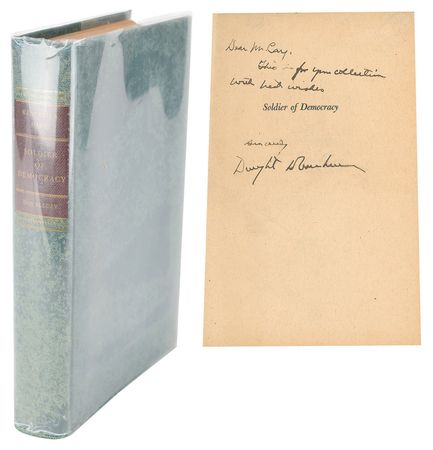 SOLDIER
OF
DEMOCRACY
Dear Mr.
This is for your collection
with best wishes
Soldier of Democracy
Sincerely
Dwight Eisenhower